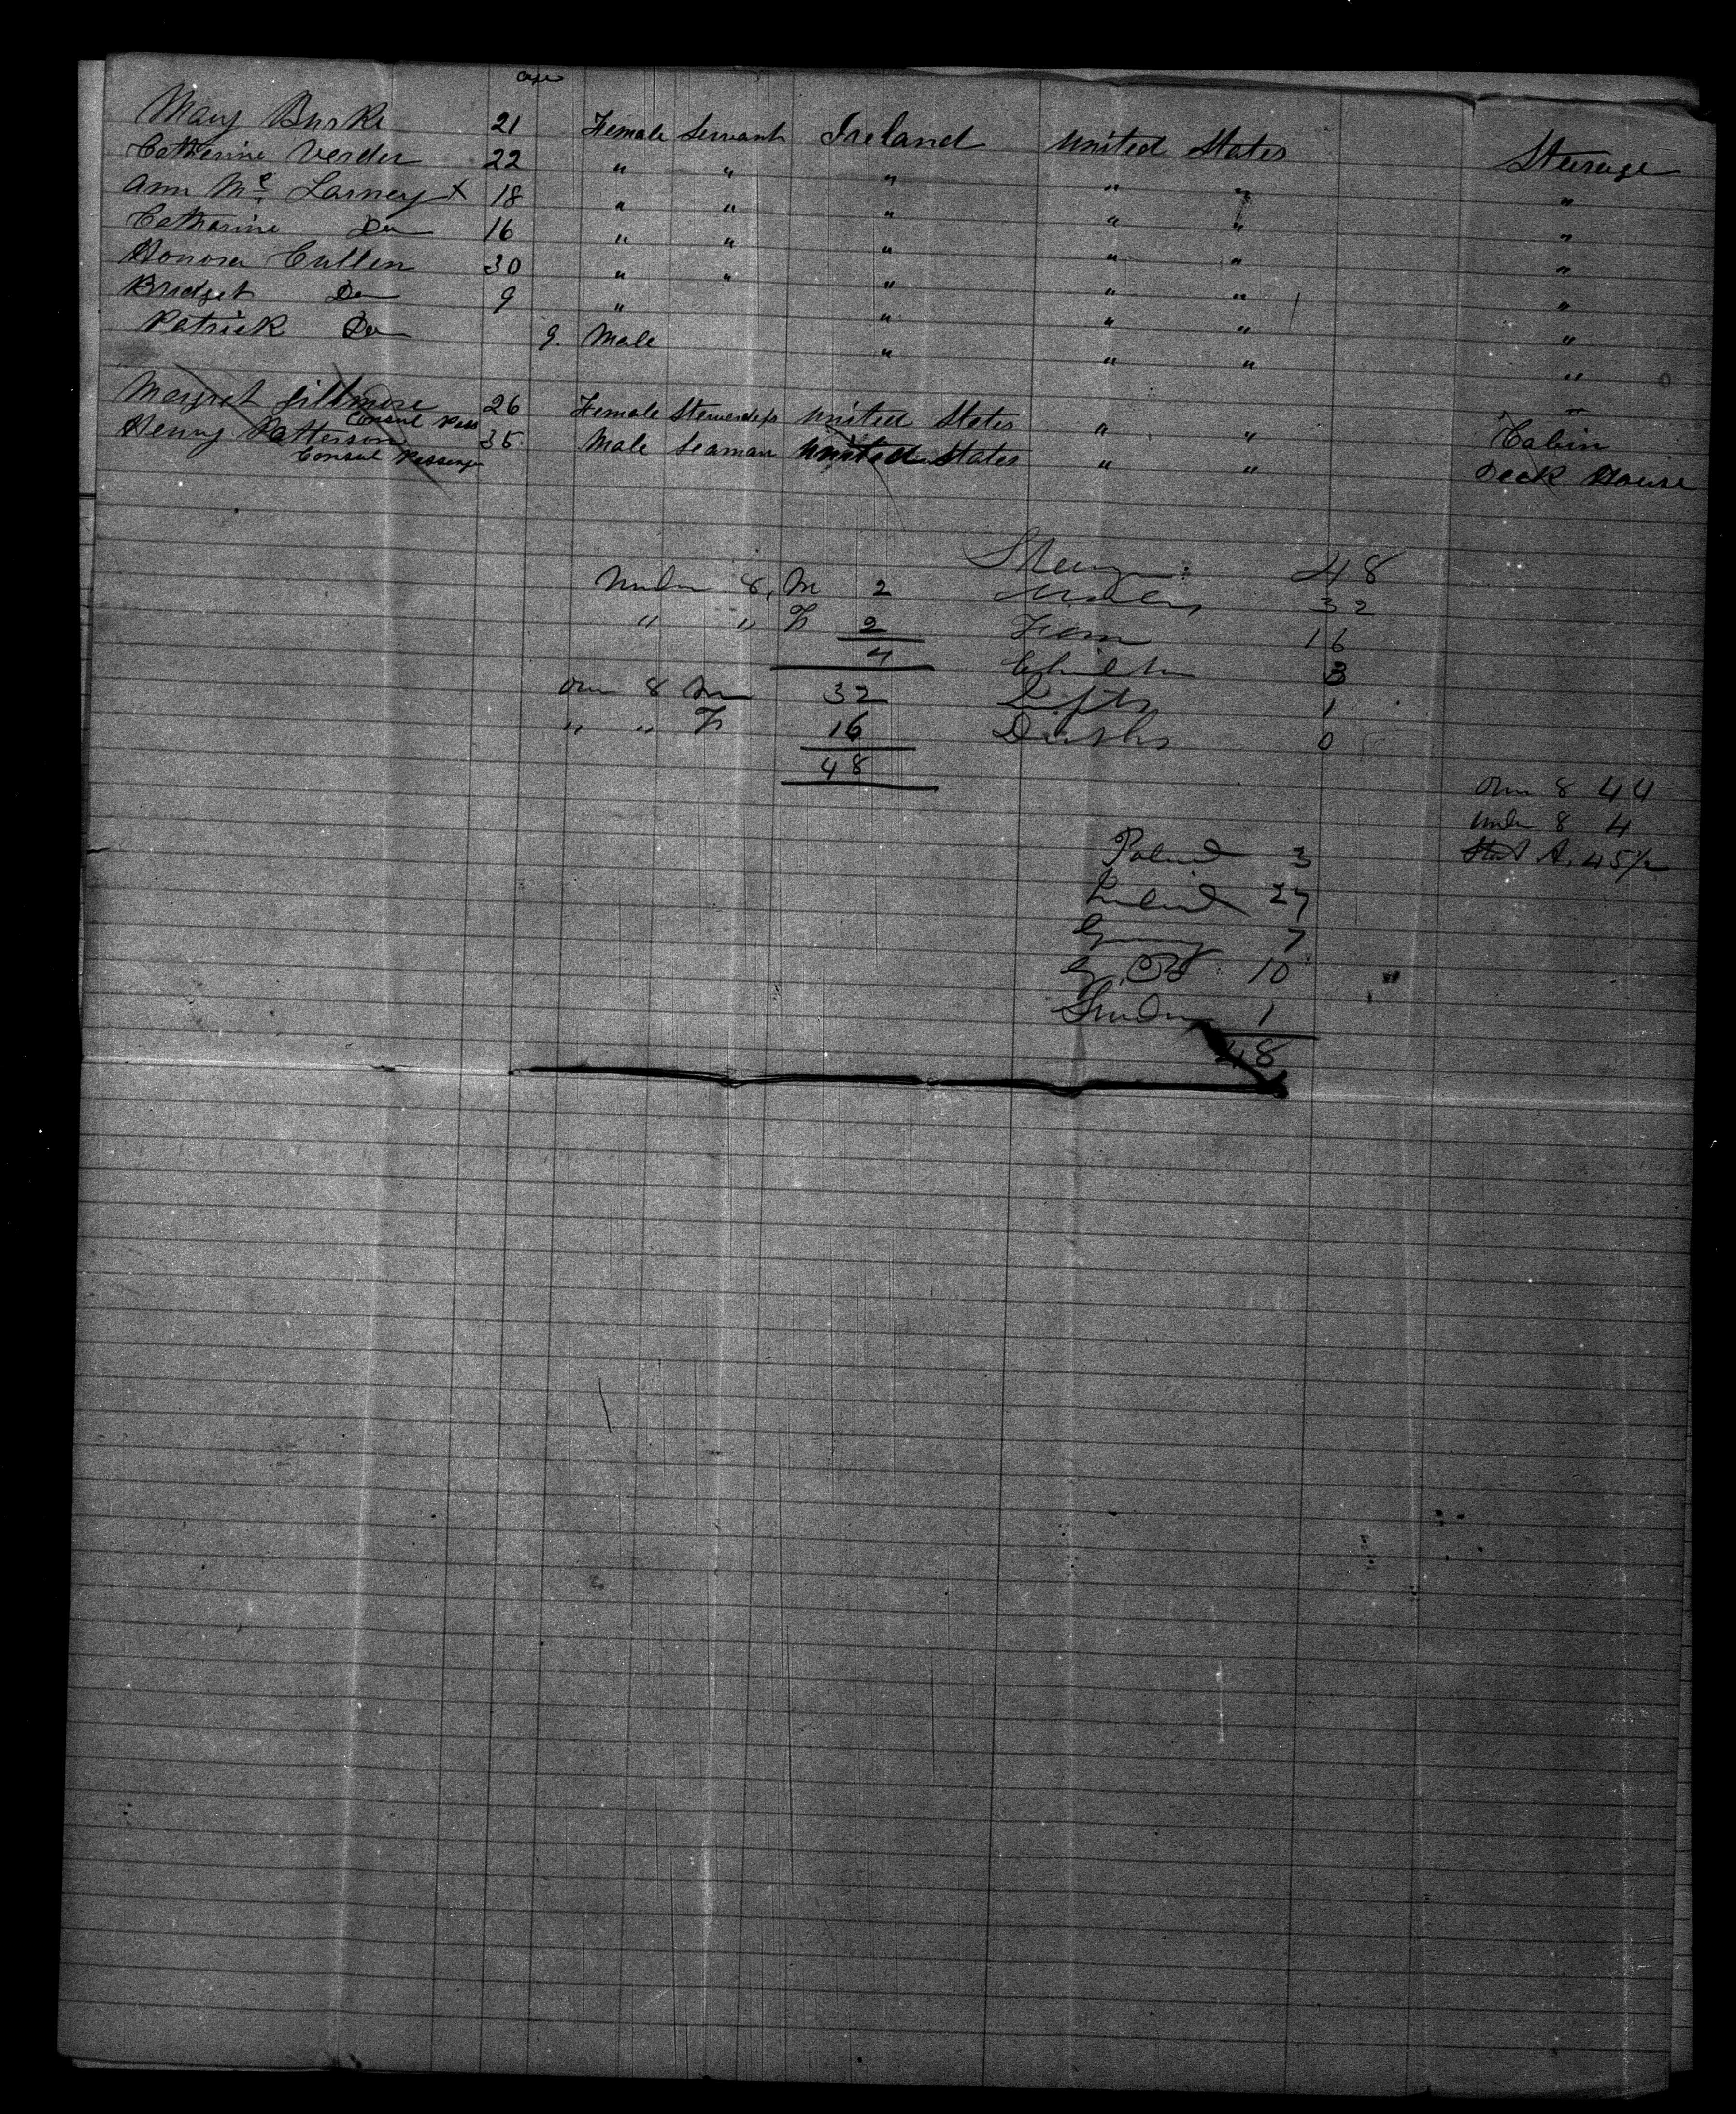 Mary Burke 21 Female Servant Ireland United States Steerage
Catherine Verder 22 " " " " " "
Ann Mc Larney x 18 " " " " " "
Catharine Do 16 " " " " " "
Honora Cullen 30 " " " " " "
Bridget Do 9 " " " " "
Patrick Do 9. Male " " " "
Margret Gillmore 26 Female Stewardess United States " " Cabin
Consul Pass
Henry Patterson 35 Male Seaman United States " " Deck House
Consul Passenger
48
Under 8, M 2 Males 32
" " F 2 Fem 16
4 Children 3
Over 8 M 32 1
" " F 16 Deaths 0
48
Over 8 44
Under 8 4
Poland 3 A. 45 1/2
Ireland 27
Germany 7
G. B 10
1
48